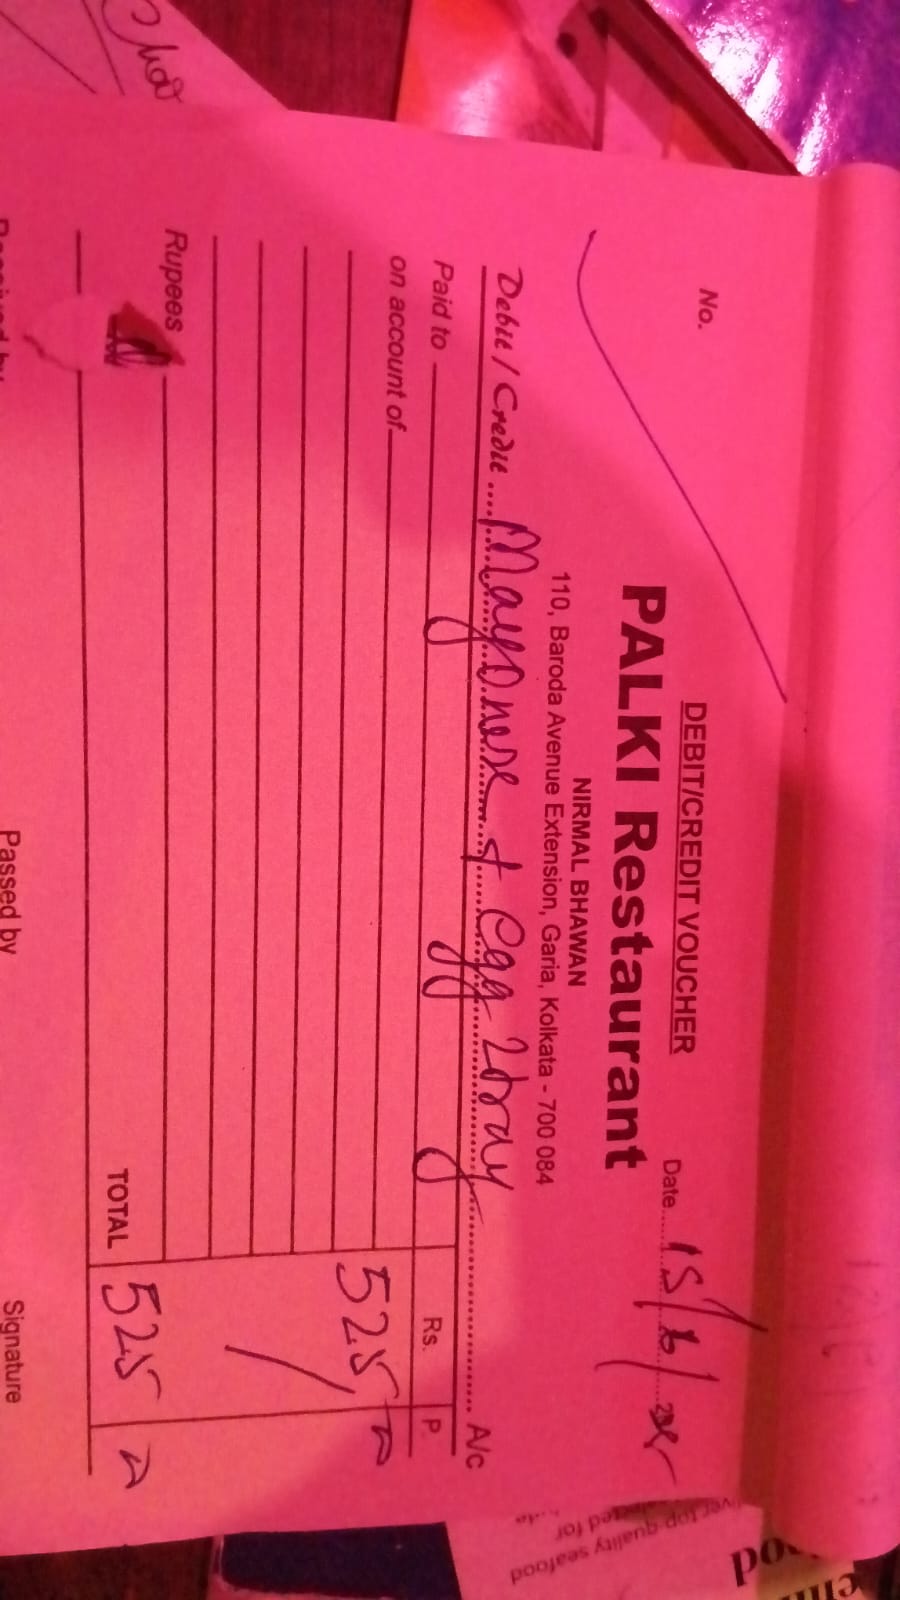 DEBIT/CREDIT VOUCHER
No.
Date 15/6/
PALKI Restaurant
NIRMAL BHAWAN
110, Baroda Avenue Extension, Garia, Kolkata - 700 084
Debit / Credit Mayonese + egg 2tray A/c
Paid to
Rs. P.
on account of
525
Rupees
TOTAL 525
Passed by
Signature
quality seafood